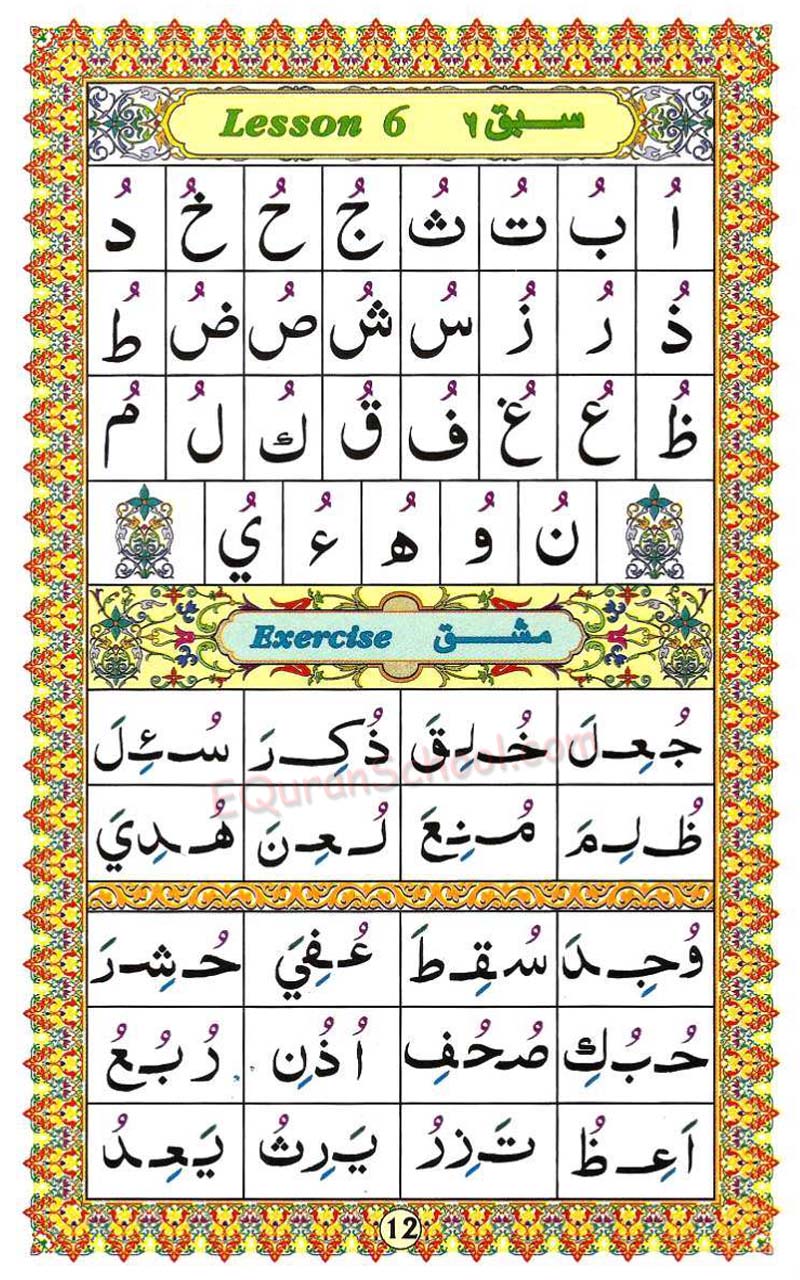 Lesson 6 سبق ٦
اُ بُ تُ ثُ جُ حُ خُ دُ
ذُ رُ زُ سُ شُ صُ ضُ طُ
ظُ عُ غُ فُ قُ كُ لُ مُ
نُ وُ هُ ءُ يُ
Exercise مشق
جُعِلَ خُلِقَ ذُكِرَ سُئِلَ
EQuranSchool.com
ظُلِمَ مُنِعَ لُعِنَ هُدِيَ
وُجِدَ سُقِطَ عُفِيَ حُشِرَ
حُبُكِ صُحُفِ اُذُنِ رُبُعُ
اَعِظُ تَزِرُ يَرِثُ يَعِدُ
12